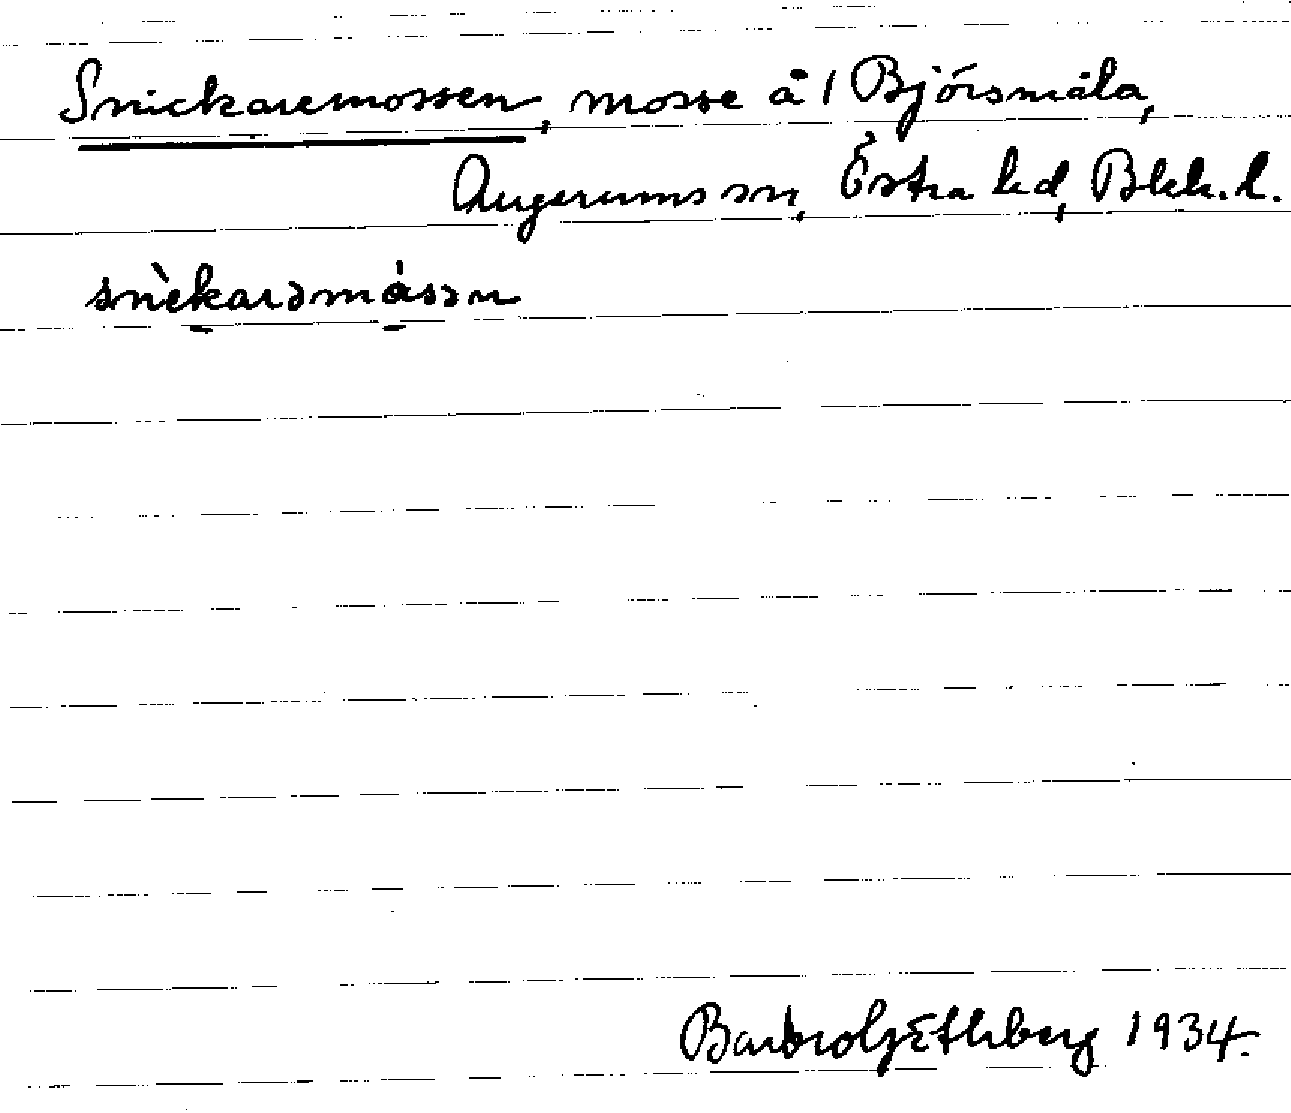 Snickaremossen, mosse å 1 Björsmåla,
Augerums sn, Östra hd, Blek. l.
snèkarəmȧsən
Barbro Göthberg 1934.